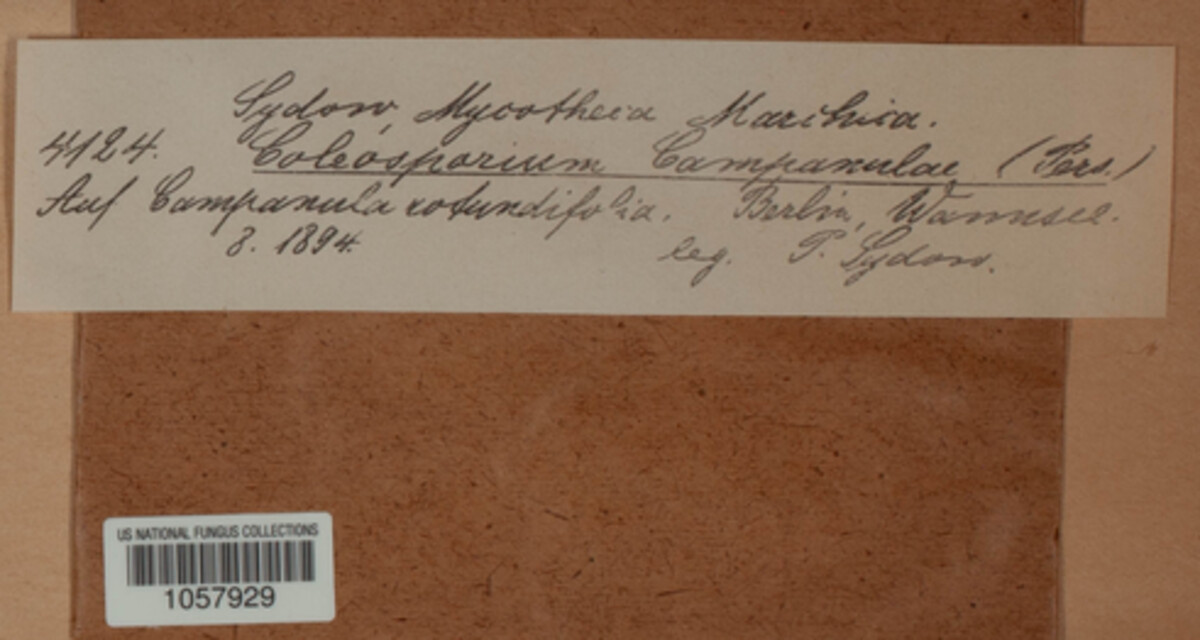 Sydow, Mycotheca Marchica.
4124. Coleosporium Campanulae (Pers.)
Auf Campanula rotundifolia. Berlin, Wannsee.
8. 1894. leg. P. Sydow.
US NATIONAL FUNGUS COLLECTIONS
1057929